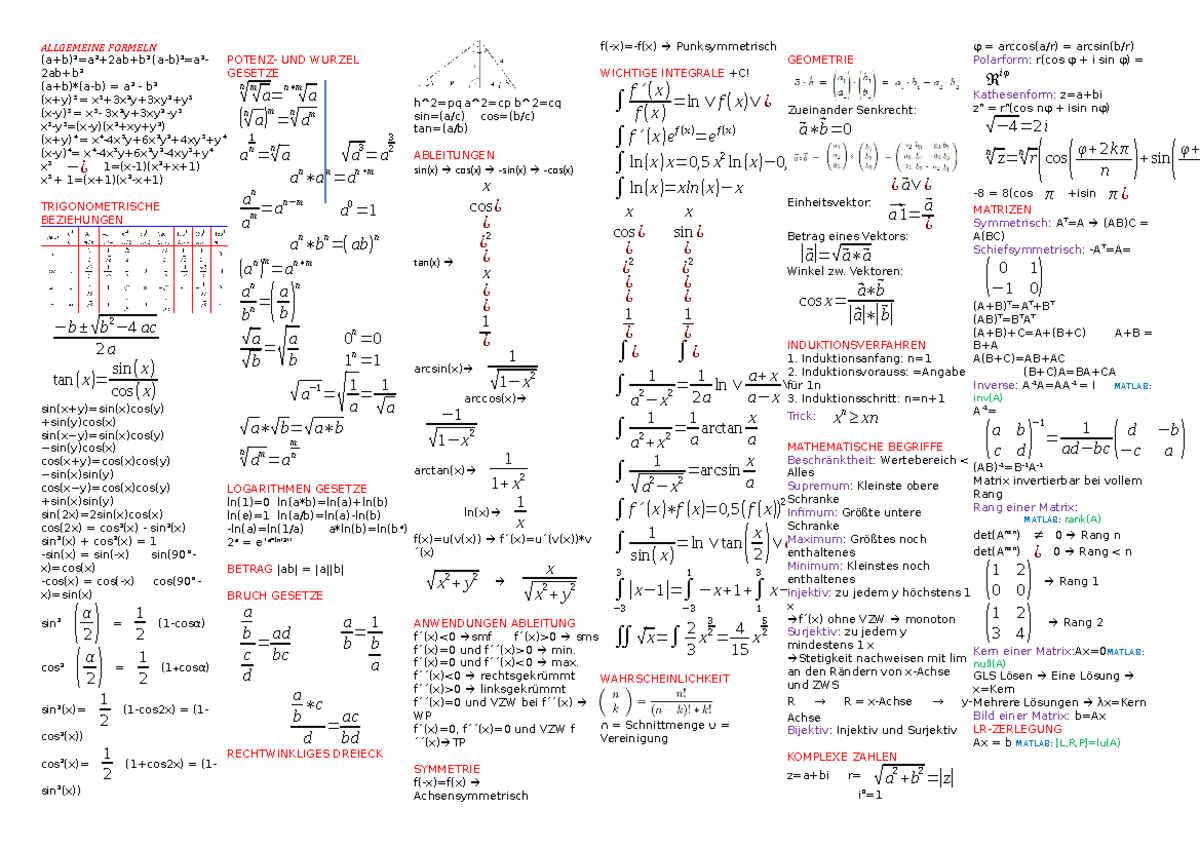 ALLGEMEINE FORMELN
(a+b)²=a²+2ab+b² (a-b)²=a²-
2ab+b²
(a+b)*(a-b) = a² - b²
(x+y)³ = x³+3x²y+3xy²+y³
(x-y)³ = x³- 3x²y+3xy²-y³
x³-y³=(x-y)(x²+xy+y²)
(x+y)⁴ = x⁴-4x³y+6x²y²+4xy³+y⁴
(x-y)⁴= x⁴-4x³y+6x²y²-4xy³+y⁴
x³ −¿ 1=(x-1)(x²+x+1)
x³+ 1=(x+1)(x²-x+1)
TRIGONOMETRISCHE
BEZIEHUNGEN
−b±√b²−4ac / 2a
tan(x)=sin(x)/cos(x)
sin(x+y)=sin(x)cos(y)
+sin(y)cos(x)
sin(x−y)=sin(x)cos(y)
−sin(y)cos(x)
cos(x+y)=cos(x)cos(y)
−sin(x)sin(y)
cos(x−y)=cos(x)cos(y)
+sin(x)sin(y)
sin(2x)=2sin(x)cos(x)
cos(2x) = cos²(x) - sin²(x)
sin²(x) + cos²(x) = 1
-sin(x) = sin(-x) sin(90°-
x)=cos(x)
-cos(x) = cos(-x) cos(90°-
x)=sin(x)
sin² (α/2) = 1/2 (1-cosα)
cos² (α/2) = 1/2 (1+cosα)
sin²(x)= 1/2 (1-cos2x) = (1-
cos²(x))
cos²(x)= 1/2 (1+cos2x) = (1-
sin²(x))
POTENZ- UND WURZEL
GESETZE
ⁿ√ᵐ√a=ⁿ*ᵐ√a
(ⁿ√a)ᵐ=ⁿ√aᵐ
a^(1/n)=ⁿ√a √a³=a^(3/2)
aⁿ*aᵐ=aⁿ*ᵐ
aⁿ/aᵐ=aⁿ⁻ᵐ a⁰=1
aⁿ*bⁿ=(ab)ⁿ
(aⁿ)ᵐ=aⁿ*ᵐ
aⁿ/bⁿ=(a/b)ⁿ
√a/√b=√(a/b) 0ⁿ=0
1ⁿ=1
√a⁻¹=√(1/a)=1/√a
√a*√b=√a*b
ⁿ√aᵐ=a^(m/n)
LOGARITHMEN GESETZE
ln(1)=0 ln(a*b)=ln(a)+ln(b)
ln(e)=1 ln(a/b)=ln(a)-ln(b)
-ln(a)=ln(1/a) a*ln(b)=ln(bᵃ)
BETRAG |ab| = |a||b|
BRUCH GESETZE
(a/b)/(c/d)=ad/bc a/b=1/(b/a)
(a/b*c)/d=ac/bd
RECHTWINKLIGES DREIECK
h^2=pq a^2=cp b^2=cq
sin=(a/c) cos=(b/c)
tan=(a/b)
ABLEITUNGEN
sin(x) → cos(x) → -sin(x) → -cos(x)
x
cos¿
¿
¿²
tan(x) → ¿
x
¿
¿
1/¿
arcsin(x)→ 1/√1−x²
arccos(x)→
−1/√1−x²
arctan(x)→ 1/1+x²
ln(x)→ 1/x
f(x)=u(v(x)) → f´(x)=u´(v(x))*v
´(x)
√x²+y² → x/√x²+y²
ANWENDUNGEN ABLEITUNG
f´(x)<0 →smf f´(x)>0 → sms
f´(x)=0 und f´´(x)>0 > min.
f´(x)=0 und f´´(x)<0 → max.
f´´(x)<0 → rechtsgekrümmt
f´´(x)>0 → linksgekrümmt
f´´(x)=0 und VZW bei f´´(x) →
WP
f´(x)=0, f´´(x)=0 und VZW f
´´(x)→TP
SYMMETRIE
f(-x)=f(x) →
Achsensymmetrisch
f(-x)=-f(x) → Punksymmetrisch
WICHTIGE INTEGRALE +C!
∫f´(x)/f(x)=ln∨f(x)∨¿
∫f´(x)e^f(x)=e^f(x)
∫ln(x)x=0,5x²ln(x)−0,
∫ln(x)=xln(x)−x
x x
cos¿ sin¿
¿ ¿
¿² ¿²
¿ ¿
¿ ¿
1/¿ 1/¿
∫¿ ∫¿
∫1/a²−x²=1/2a ln∨a+x/a−x∨
∫1/a²+x²=1/a arctan x/a
∫1/√a²−x²=arcsin x/a
∫f´(x)*f(x)=0,5(f(x))²
∫1/sin(x)=ln∨tan(x/2)∨¿
∫₋₃³|x−1|=∫₋₃¹−x+1+∫₁³x−
∬√x=∫2/3 x^(3/2)=4/15 x^(5/2)
WAHRSCHEINLICHKEIT
(n k)=n!/(n−k)!*k!
∩ = Schnittmenge ∪ =
Vereinigung
GEOMETRIE
Zueinander Senkrecht:
a⃗*b⃗=0
¿a⃗∨¿
Einheitsvektor: a⃗1=a⃗/¿
Betrag eines Vektors:
|a⃗|=√a⃗*a⃗
Winkel zw. Vektoren:
cosx=a⃗*b⃗/|a⃗|*|b⃗|
INDUKTIONSVERFAHREN
1. Induktionsanfang: n=1
2. Induktionsvorauss: =Angabe
für 1n
3. Induktionsschritt: n=n+1
Trick: xⁿ≥xn
MATHEMATISCHE BEGRIFFE
Beschränktheit: Wertebereich <
Alles
Supremum: Kleinste obere
Schranke
Infimum: Größte untere
Schranke
Maximum: Größtes noch
enthaltenes
Minimum: Kleinstes noch
enthaltenes
Injektiv: zu jedem y höchstens 1
x
→f´(x) ohne VZW → monoton
Surjektiv: zu jedem y
mindestens 1 x
→Stetigkeit nachweisen mit lim
an den Rändern von x-Achse
und ZWS
R → R = x-Achse → y-
Achse
Bijektiv: Injektiv und Surjektiv
KOMPLEXE ZAHLEN
z=a+bi r= √a²+b²=|z|
i⁰=1
φ = arccos(a/r) = arcsin(b/r)
Polarform: r(cos φ + i sin φ) =
ℜ^iφ
Kathesenform: z=a+bi
zⁿ = rⁿ(cos nφ + isin nφ)
√−4=2i
ⁿ√z=ⁿ√r(cos(φ+2kπ/n)+sin(φ+
-8 = 8(cos π +isin π¿
MATRIZEN
Symmetrisch: Aᵀ=A → (AB)C =
A(BC)
Schiefsymmetrisch: -Aᵀ=A=
(0 1
−1 0)
(A+B)ᵀ=Aᵀ+Bᵀ
(AB)ᵀ=BᵀAᵀ
(A+B)+C=A+(B+C) A+B =
B+A
A(B+C)=AB+AC
(B+C)A=BA+CA
Inverse: A⁻¹A=AA⁻¹ = I MATLAB:
inv(A)
A⁻¹=
(a b
c d)⁻¹=1/ad−bc (d −b
−c a)
(AB)⁻¹=B⁻¹A⁻¹
Matrix invertierbar bei vollem
Rang
Rang einer Matrix:
MATLAB: rank(A)
det(Aⁿˣⁿ) ≠ 0 → Rang n
det(Aⁿˣⁿ) ¿ 0 → Rang < n
(1 2
0 0) → Rang 1
(1 2
3 4) → Rang 2
Kern einer Matrix:Ax=0MATLAB:
null(A)
GLS Lösen → Eine Lösung →
x=Kern
Mehrere Lösungen → λx=Kern
Bild einer Matrix: b=Ax
LR-ZERLEGUNG
Ax = b MATLAB: [L,R,P]=lu(A)